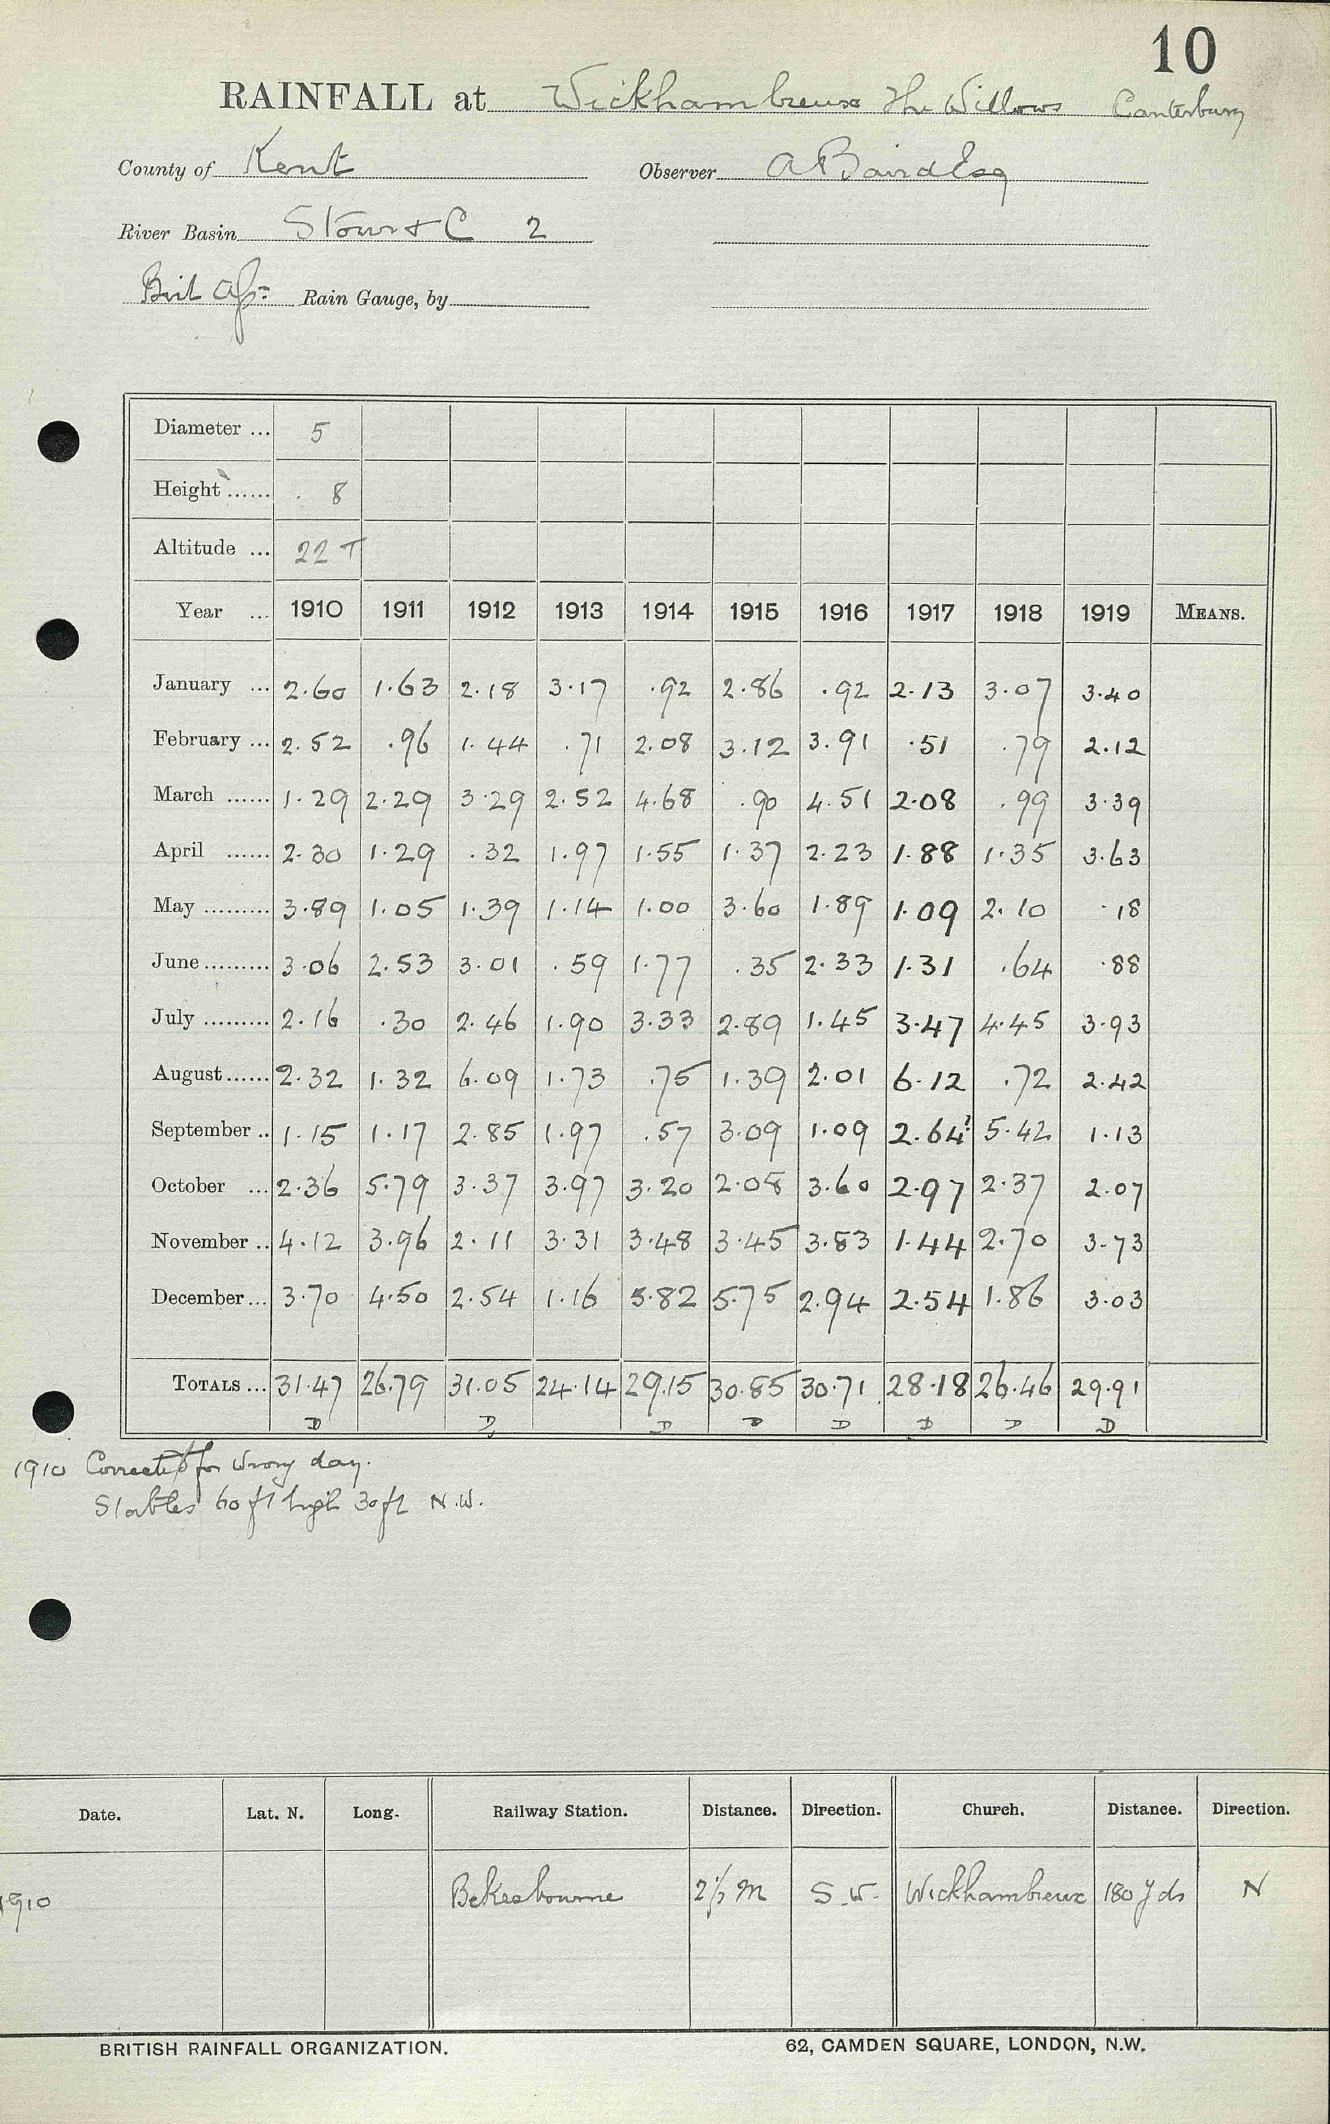 10
RAINFALL at Wickhambreux The Willows Canterbury
County of Kent Observer A Baird Esq
River Basin Stour & C 2
Rain Gauge, by
Diameter ... 5
Height ...... . 8
Altitude ... 22 T
Year ... 1910 1911 1912 1913 1914 1915 1916 1917 1918 1919 MEANS.
January ... 2.60 1.63 2.18 3.17 .92 2.86 .92 2.13 3.07 3.40
February ... 2.52 .96 1.44 .71 2.08 3.12 3.91 .51 .79 2.12
March ...... 1.29 2.29 3.29 2.52 4.68 .90 4.51 2.08 .99 3.39
April ...... 2.30 1.29 .32 1.97 1.55 1.37 2.23 1.88 1.35 3.63
May ......... 3.89 1.05 1.39 1.14 1.00 3.60 1.89 1.09 2.10 .18
June ......... 3.06 2.53 3.01 .59 1.77 .35 2.33 1.31 .64 .88
July ......... 2.16 .30 2.46 1.90 3.33 2.89 1.45 3.47 4.45 3.93
August ...... 2.32 1.32 6.09 1.73 .75 1.39 2.01 6.12 .72 2.42
September .. 1.15 1.17 2.85 1.97 .57 3.09 1.09 2.64? 5.42 1.13
October ... 2.36 5.79 3.37 3.97 3.20 2.08 3.60 2.97 2.37 2.07
November .. 4.12 3.96 2.11 3.31 3.48 3.45 3.83 1.44 2.70 3.73
December ... 3.70 4.50 2.54 1.16 5.82 5.75 2.94 2.54 1.86 3.03
TOTALS ... 31.47 26.79 31.05 24.14 29.15 30.85 30.71 28.18 26.46 29.91
D D D D D D D D
1910 Corrected for wrong day.
Stables 60 ft high 30 ft N.W.
Date. Lat. N. Long. Railway Station. Distance. Direction. Church. Distance. Direction.
1910 Bekesbourne 2½ M S.W. Wickhambreux 180 yds N
BRITISH RAINFALL ORGANIZATION. 62, CAMDEN SQUARE, LONDON, N.W.